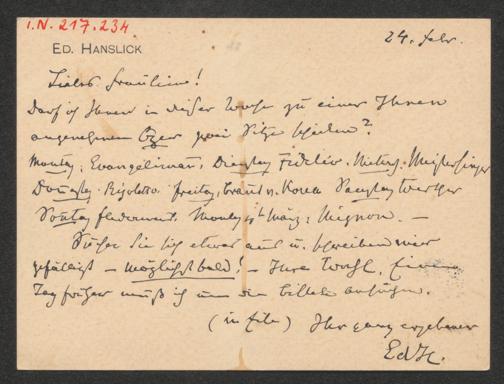 I.N. 217.234
ED. HANSLICK
24. Febr.
Liebes Fräulein!
Darf ich Ihnen in dieser Woche zu einer Ihnen
angenehmen Oper zwei Sitze schicken?
Montag: Evangelimann, Dienstag Fidelio. Mittw. Meistersinger
Donstag: Rigoletto. Freitag, Braut v. Korea Samstag Werther
Sonntag Fledermaus, Montag 1t März: Mignon. —
Suchen Sie sich etwas aus u. schreiben mir
gefälligst — möglichst bald! — Ihre Wahl. Einen
Tag früher muß ich um die Billete ansuchen.
(in Eile) Ihr ganz ergebener
EdH.